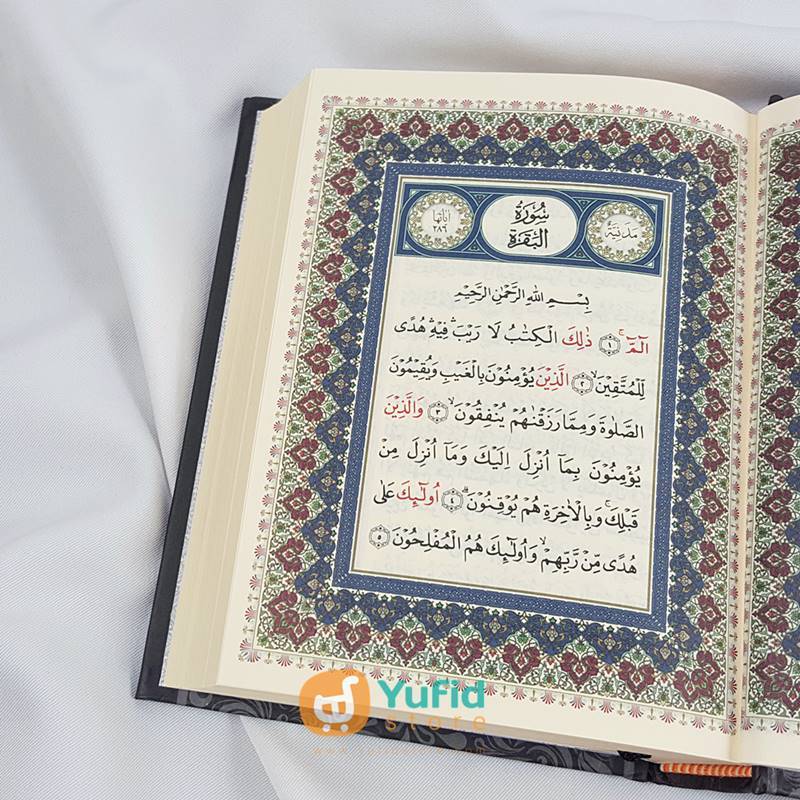 مَدَنِيَّة
سُورَةُ
الْبَقَرَةِ
اٰيَاتُهَا
٢٨٦
بِسْمِ اللّٰهِ الرَّحْمٰنِ الرَّحِيْمِ
الٓمّٓ ۚ ﴿١﴾ ذٰلِكَ الْكِتٰبُ لَا رَيْبَ ۛ فِيْهِ ۛ هُدًى
لِّلْمُتَّقِيْنَ ۙ ﴿٢﴾ الَّذِيْنَ يُؤْمِنُوْنَ بِالْغَيْبِ وَيُقِيْمُوْنَ
الصَّلٰوةَ وَمِمَّا رَزَقْنٰهُمْ يُنْفِقُوْنَ ۙ ﴿٣﴾ وَالَّذِيْنَ
يُؤْمِنُوْنَ بِمَآ اُنْزِلَ اِلَيْكَ وَمَآ اُنْزِلَ مِنْ
قَبْلِكَ ۚ وَبِالْاٰخِرَةِ هُمْ يُوْقِنُوْنَ ۗ ﴿٤﴾ اُولٰٓئِكَ عَلٰى
هُدًى مِّنْ رَّبِّهِمْ ۙ وَاُولٰٓئِكَ هُمُ الْمُفْلِحُوْنَ ﴿٥﴾
YuFid
store